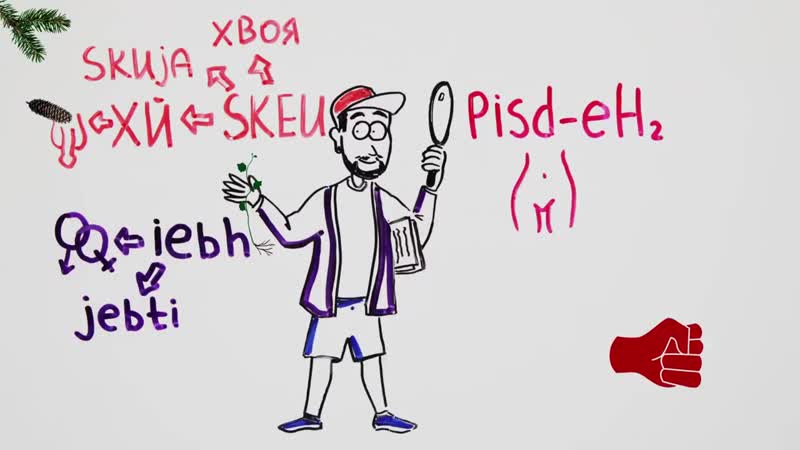 ХВОЯ
SKUjA
ХЙ SKEU
Pisd-eH₂
iebh
jebti